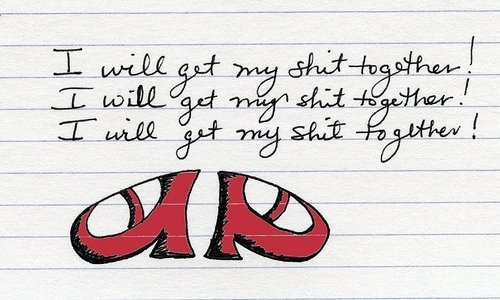 I will get my shit together!
I will get my shit together!
I will get my shit together!